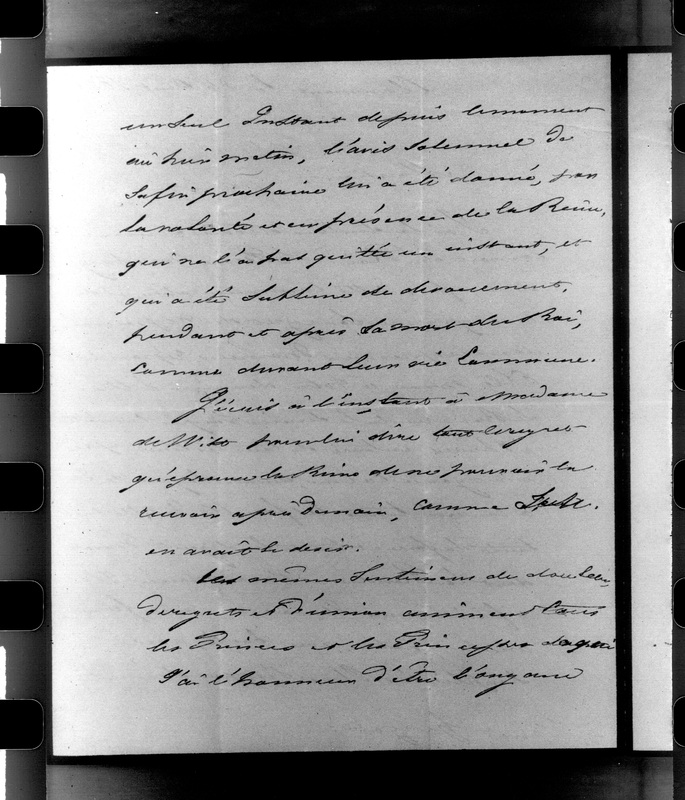 un seul Instant depuis le moment
où hier matin, l'avis solemnel de
sa fin prochaine lui a été donné, par
la volonté et en présence de la Reine,
qui ne l'a pas quitté un instant, et
qui a été sublime de dévouement,
pendant et après la mort du Roi,
comme durant leur vie commune.
J'écris à l'instant à Madame
de Witt pour lui dire tout le regret
qu'éprouve la Reine de ne pouvoir la
recevoir après Demain, comme
en avait le desir.
Les mêmes Sentimens de douleur,
de regrets et d'union animent tous
les Princes et les Princesses de qui
J'ai l'honneur d'être l'organe